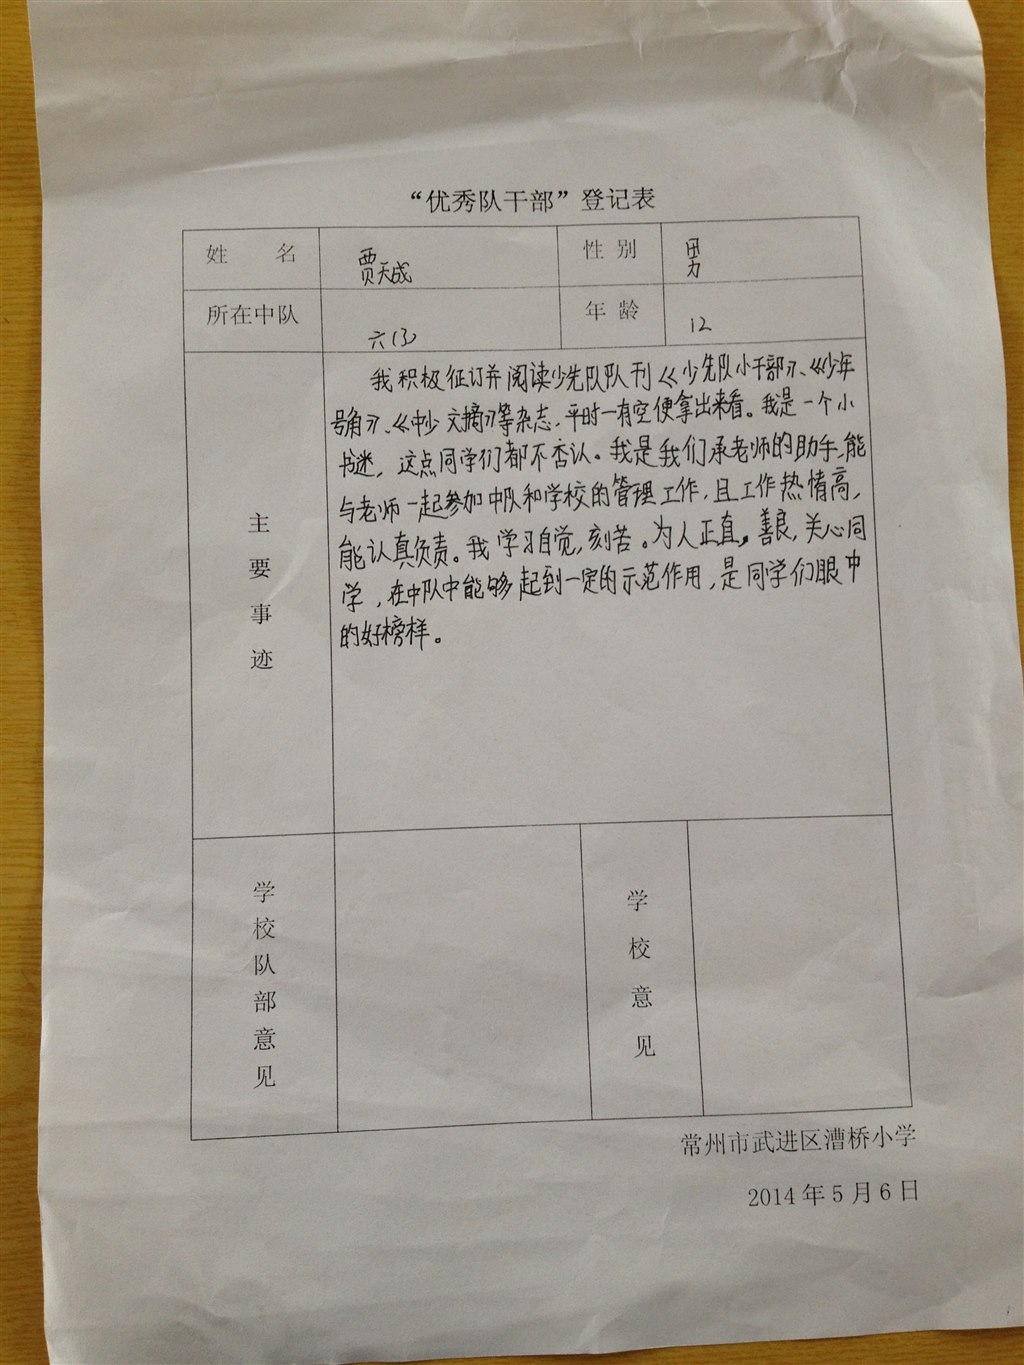 “优秀队干部”登记表
姓 名 贾天成 性 别 男
所在中队 六(3) 年 龄 12
主要事迹
我积极征订并阅读少先队队刊《少先队小干部》、《少年
号角》、《中少文摘》等杂志,平时一有空便拿出来看。我是一个小
书迷,这点同学们都不否认。我是我们承老师的助手,能
与老师一起参加中队和学校的管理工作,且工作热情高,
能认真负责。我学习自觉,刻苦。为人正直,善良,关心同
学,在中队中能够起到一定的示范作用,是同学们眼中
的好榜样。
学校队部意见
学校意见
常州市武进区漕桥小学
2014年5月6日